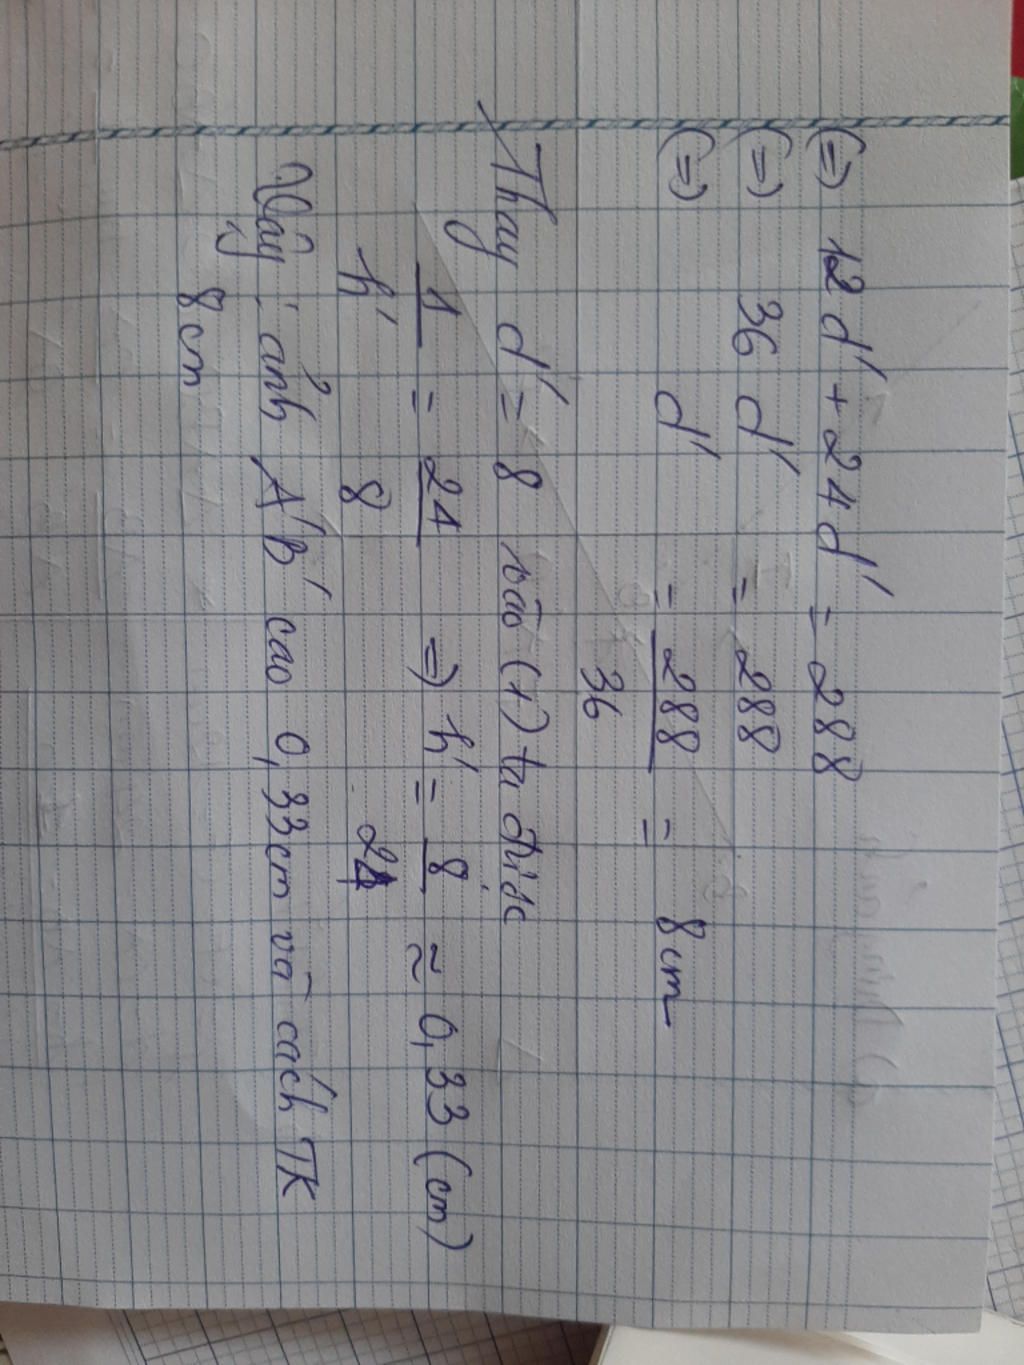 (=) 12d' + 24d' = 288
(=) 36 d' = 288
(=) d' = 288/36 = 8cm
Thay d' = 8 vào (1) ta được
1/h' = 24/8 => h' = 8/24 ≈ 0,33 (cm)
Vậy ảnh A'B' cao 0,33cm và cách TK
8cm